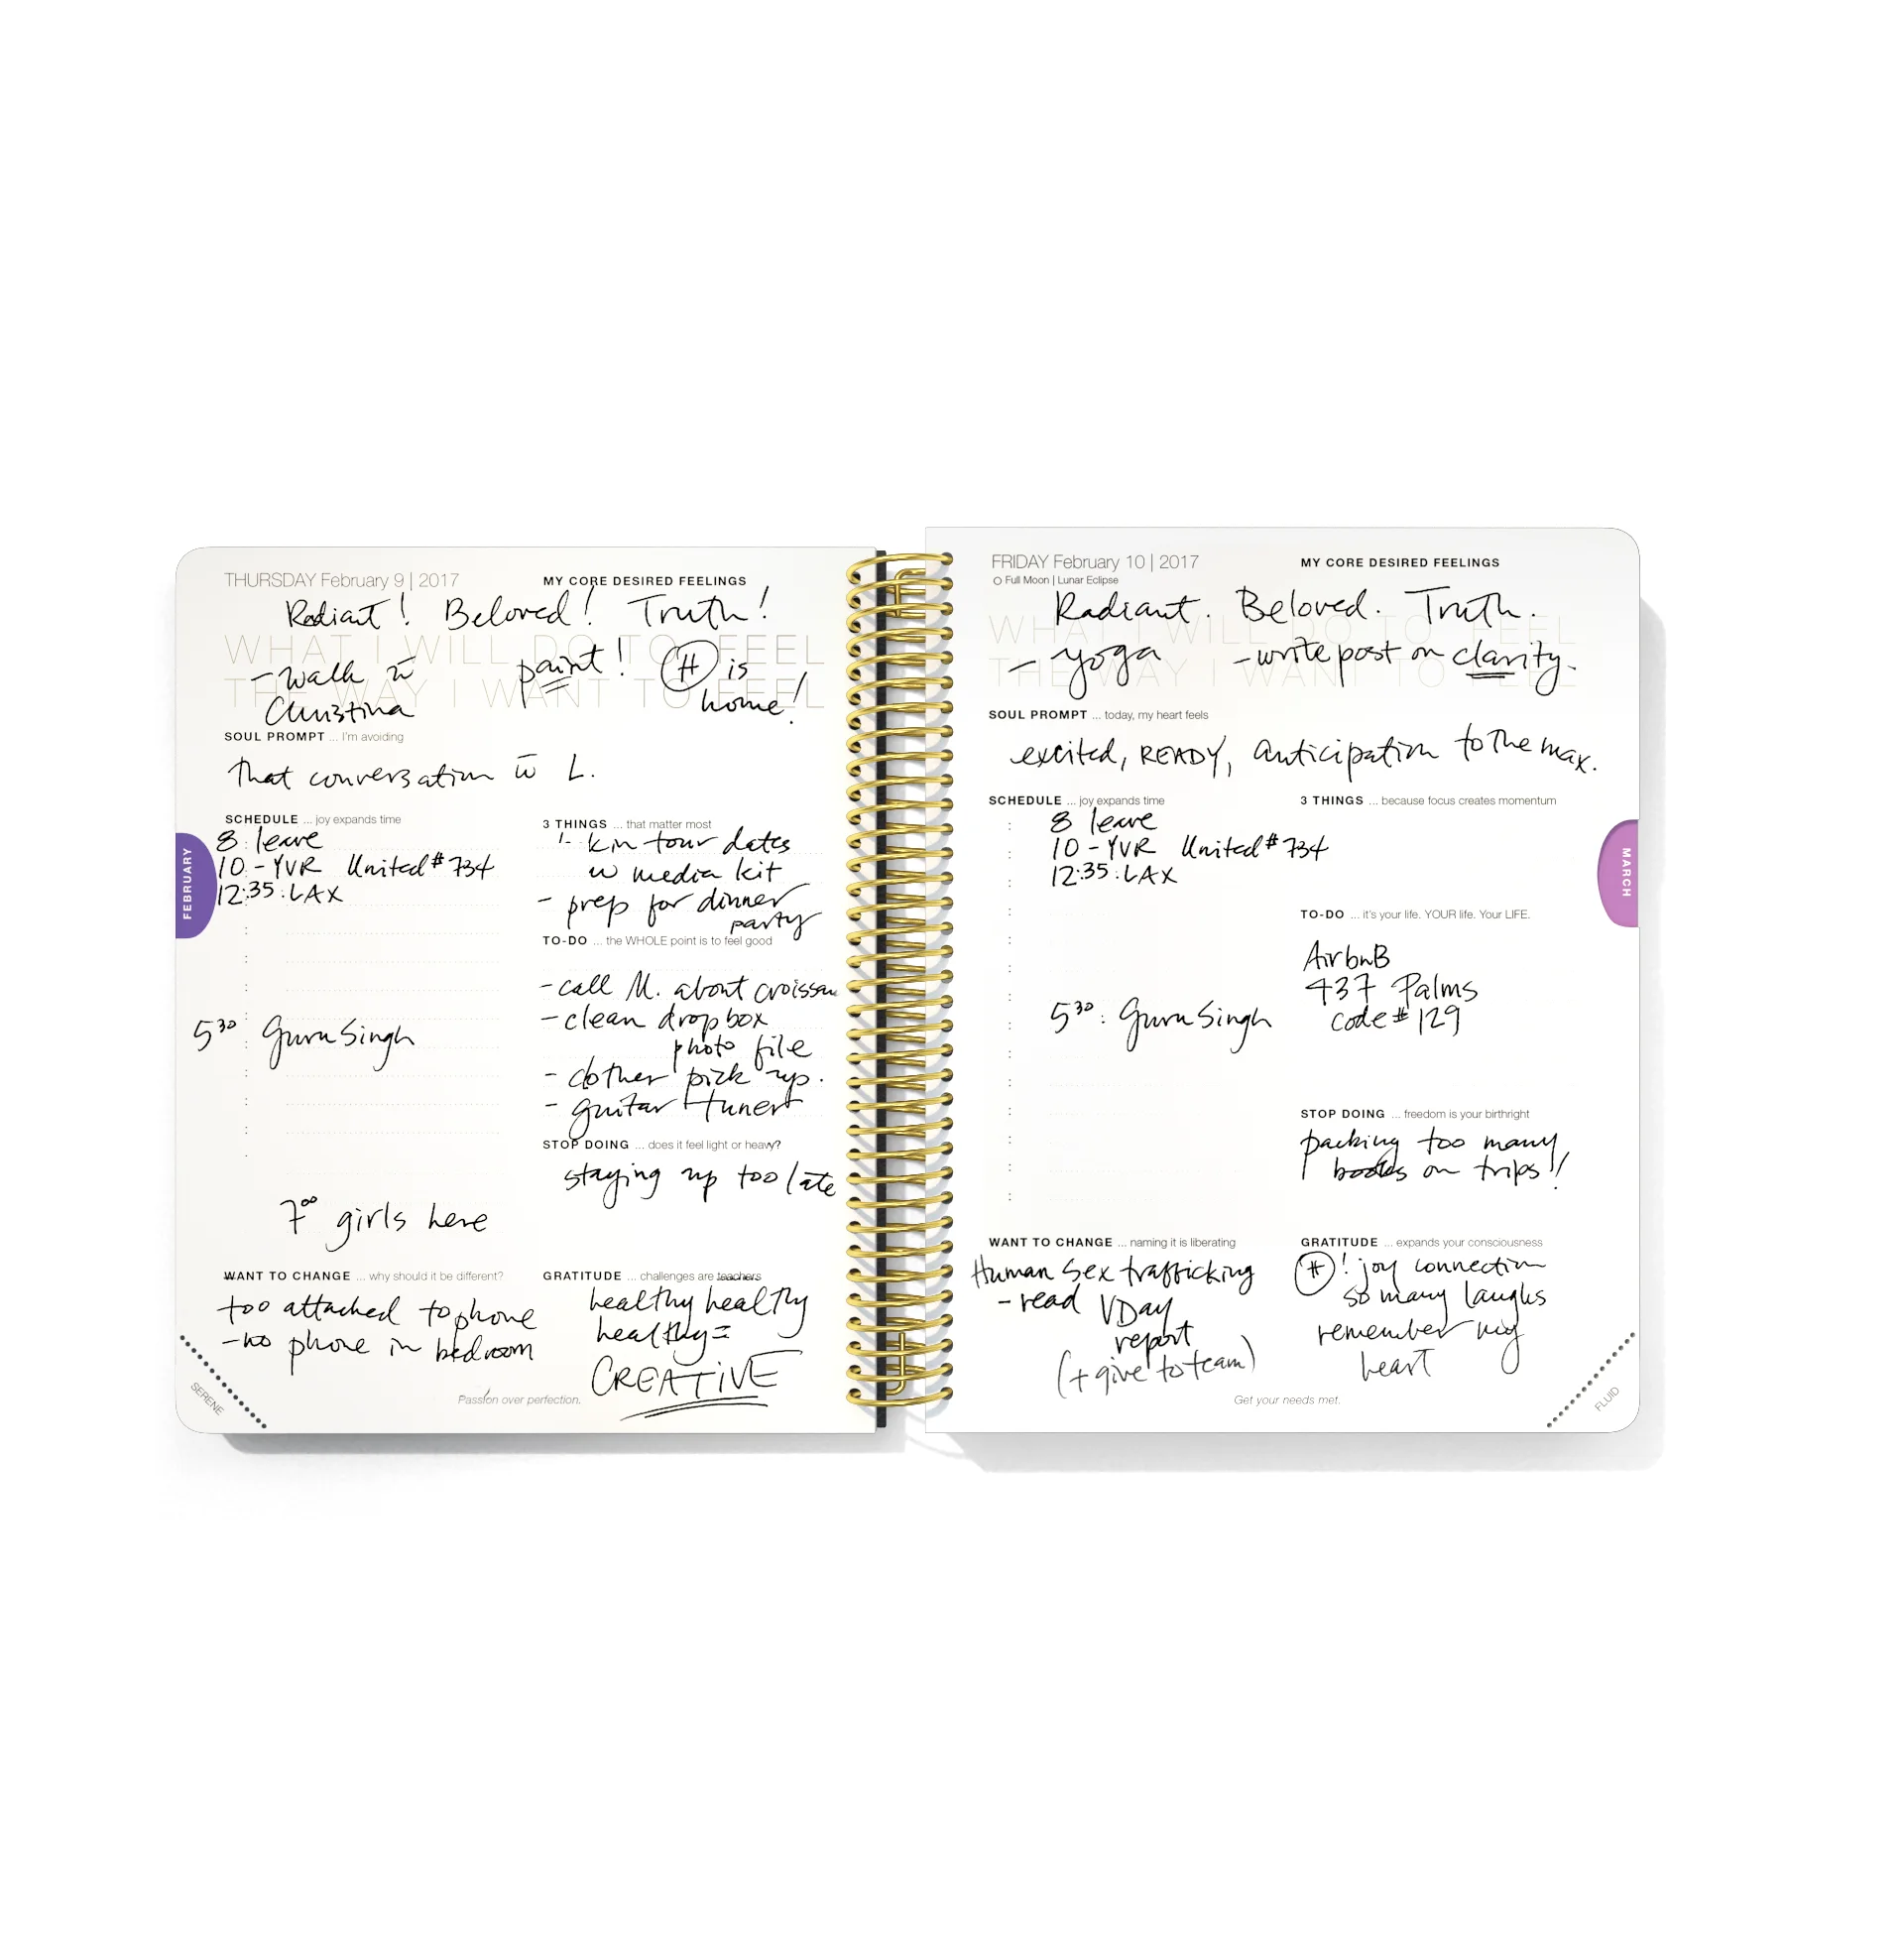 THURSDAY February 9 | 2017
MY CORE DESIRED FEELINGS
Radiant! Beloved! Truth!
WHAT I WILL DO TO FEEL
THE WAY I WANT TO FEEL
- walk w̄ paint! (H) is
Christina home!
SOUL PROMPT ... I'm avoiding
That conversation w̄ L.
SCHEDULE ... joy expands time
8 leave
10 - YVR United # 734
12:35 : LAX
5 30 Guru Singh
7 00 girls here
3 THINGS ... that matter most
tour dates
w media kit
- prep for dinner
party
TO-DO ... the WHOLE point is to feel good
- call M. about
- clean dropbox
photo file
- pick up.
- guitar tuner
STOP DOING ... does it feel light or heavy?
staying up too late
WANT TO CHANGE ... why should it be different?
too attached to phone
- no phone in bedroom
GRATITUDE ... challenges are teachers
healthy healthy
healthy =
CREATIVE
Passion over perfection.
FEBRUARY
SERENE
FRIDAY February 10 | 2017
Full Moon | Lunar Eclipse
MY CORE DESIRED FEELINGS
Radiant. Beloved. Truth.
WHAT I WILL DO TO FEEL
THE WAY I WANT TO FEEL
- yoga - write post on clarity.
SOUL PROMPT ... today, my heart feels
excited, READY, anticipation to the max.
SCHEDULE ... joy expands time
8 leave
10 - YVR United # 734
12:35 : LAX
5 30 : Guru Singh
3 THINGS ... because focus creates momentum
TO-DO ... it's your life. YOUR life. Your LIFE.
AirbnB
437 Palms
code # 129
STOP DOING ... freedom is your birthright
packing too many
books on trips!
WANT TO CHANGE ... naming it is liberating
Human Sex trafficking
- read VDay
report
(+ give to team)
GRATITUDE ... expands your consciousness
(H)! joy connection
so many laughs
remember my
heart
Get your needs met.
MARCH
FLUID